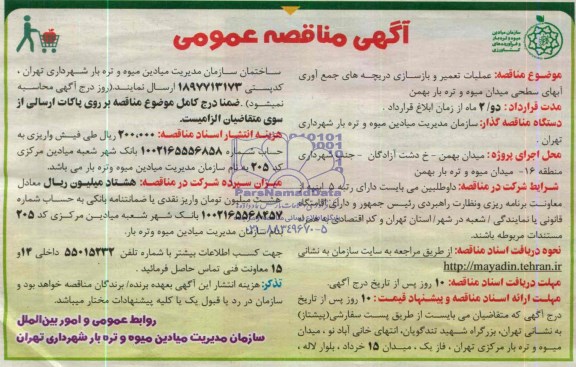 سازمان میادین
میوه و تره بار
و فرآورده های
کشاورزی
آگهی مناقصه عمومی
موضوع مناقصه: عملیات تعمیر و بازسازی دریچه های جمع آوری
آبهای سطحی میدان میوه و تره بار بهمن
مدت قرارداد: دو/۲ ماه از زمان ابلاغ قرارداد.
دستگاه مناقصه گذار: سازمان مدیریت میادین میوه و تره بار شهرداری
تهران
محل اجرای پروژه: میدان بهمن - خ دشت آزادگان - جنب شهرداری
منطقه ۱۶- میدان میوه و تره بار بهمن
شرایط شرکت در مناقصه: داوطلبین می بایست دارای رتبه ۵ ابنیه از
معاونت برنامه ریزی ونظارت راهبردی رئیس جمهور و دارای اقامتگاه
قانونی یا نمایندگی / شعبه در شهر/ استان تهران و کد اقتصادی به همراه
مستندات مربوطه باشند.
نحوه دریافت اسناد مناقصه: از طریق مراجعه به سایت سازمان به نشانی
http://mayadin.tehran.ir
مهلت دریافت اسناد مناقصه: ۱۰ روز پس از تاریخ درج آگهی.
مهلت ارائه اسناد مناقصه و پیشنهاد قیمت: ۱۰ روز پس از تاریخ
درج آگهی که متقاضیان می بایست از طریق پست سفارشی(پیشتاز)
به نشانی تهران، بزرگراه شهید تندگویان، انتهای خانی آباد نو، میدان
میوه و تره بار مرکزی تهران، فاز یک، میدان ۱۵ خرداد، بلوار لاله،
ساختمان سازمان مدیریت میادین میوه و تره بار شهرداری تهران،
کدپستی ۱۸۹۷۷۱۳۱۷۳ ارسال نمایند.(روز درج آگهی محاسبه
نمیشود). ضمنا درج کامل موضوع مناقصه بر روی پاکات ارسالی از
سوی متقاضیان الزامیست.
هزینه انتشار اسناد مناقصه: ۲۰۰.۰۰۰ ریال طی فیش واریزی به
حساب شماره ۱۰۰۲۱۶۵۵۵۶۸۵۸ بانک شهر شعبه میادین مرکزی
کد ۲۰۵ به نام سازمان مدیریت میادین میوه وتره بار می باشد.
میزان سپرده شرکت در مناقصه: هشتاد میلیون ریال معادل
هشت میلیون تومان واریز نقدی یا ضمانتنامه بانکی به حساب شماره
۱۰۰۲۱۶۵۵۶۸۲۵۷ بانک شهر شعبه میادین مرکزی کد ۲۰۵
بنام سازمان مدیریت میادین میوه وتره بار.
جهت کسب اطلاعات بیشتر با شماره تلفن ۵۵۰۱۵۳۳۲ داخلی ۱۴و
۱۵ معاونت فنی تماس حاصل فرمائید.
تذکر: هزینه انتشار این آگهی بعهده برنده/ برندگان مناقصه خواهد بود و
سازمان در رد یا قبول یک یا کلیه پیشنهادات مختار میباشد.
روابط عمومی و امور بین الملل
سازمان مدیریت میادین میوه و تره بار شهرداری تهران
ParsNamadData
۰۲۱-۸۸۳۴۹۶۷۰-۵